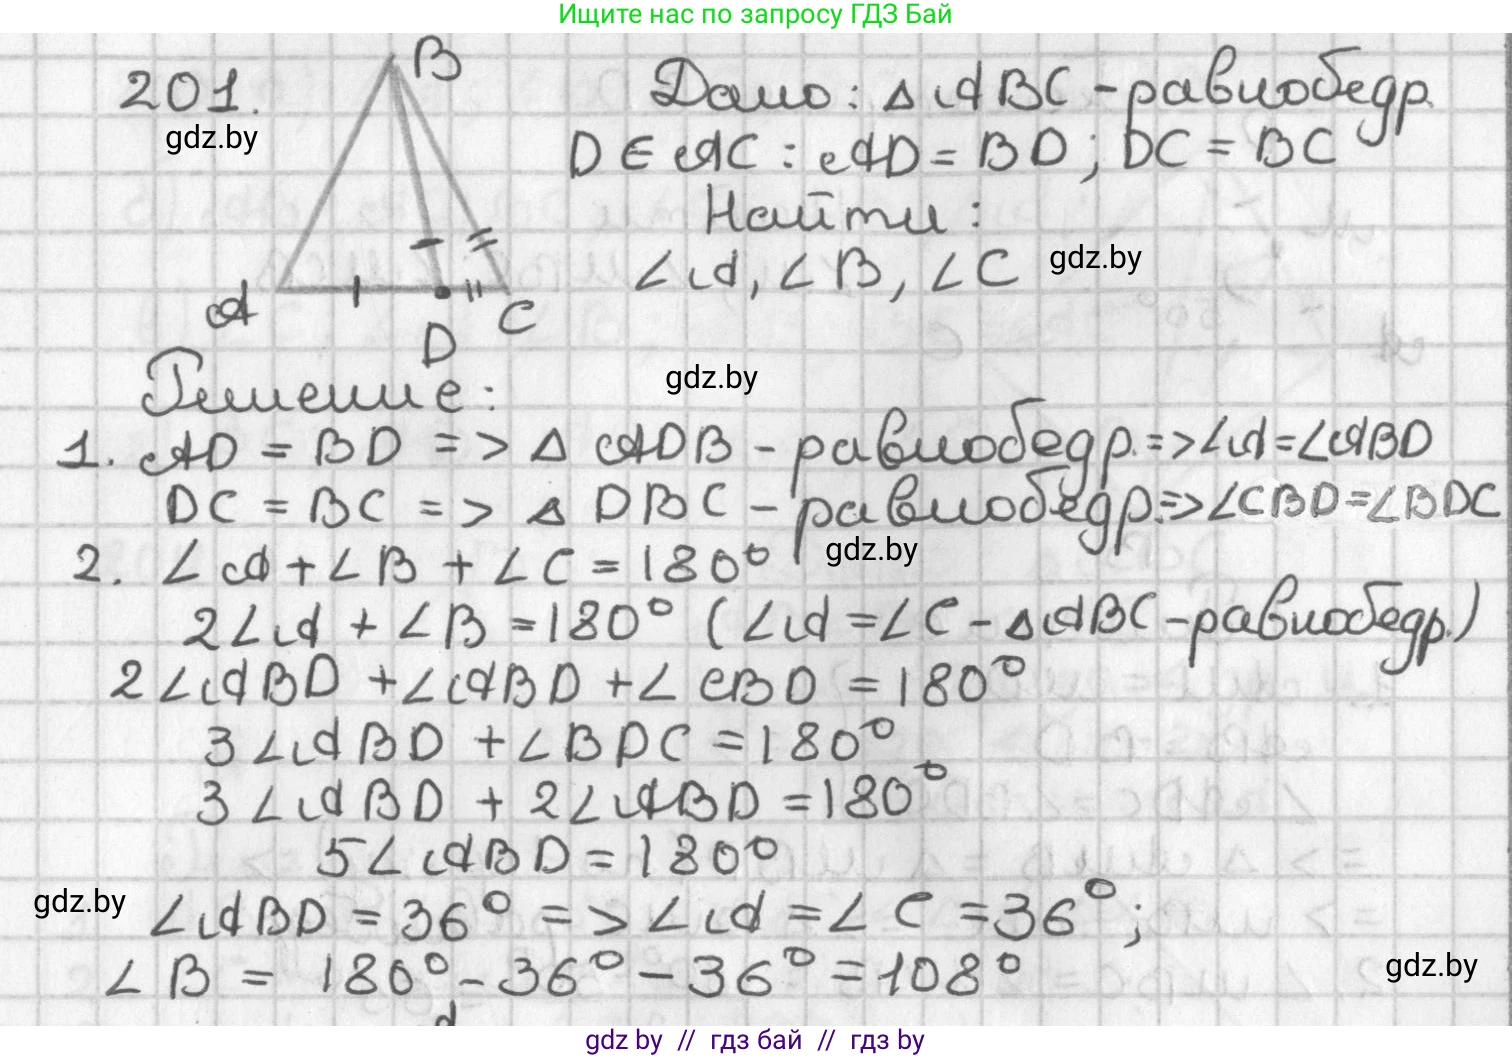 Ищите нас по запросу ГДЗ Бай
201.
gdz.by
B
A
D
C
Дано: △ABC - равнобедр.
D ∈ AC : AD = BD ; DC = BC
Найти :
∠A, ∠B, ∠C
gdz.by
gdz.by
Решение :
1. AD = BD => △ ADB - равнобедр. => ∠A = ∠ABD
DC = BC => △ DBC - равнобедр. => ∠CBD = ∠BDC
gdz.by
2. ∠A + ∠B + ∠C = 180°
2∠A + ∠B = 180° (∠A = ∠C - △ABC - равнобедр.)
2∠ABD + ∠ABD + ∠CBD = 180°
3∠ABD + ∠BDC = 180°
3∠ABD + 2∠ABD = 180°
5∠ABD = 180°
gdz.by
∠ABD = 36° => ∠A = ∠C = 36° ;
∠B = 180° - 36° - 36° = 108°
gdz.by
gdz by // гдз бай // гдз by